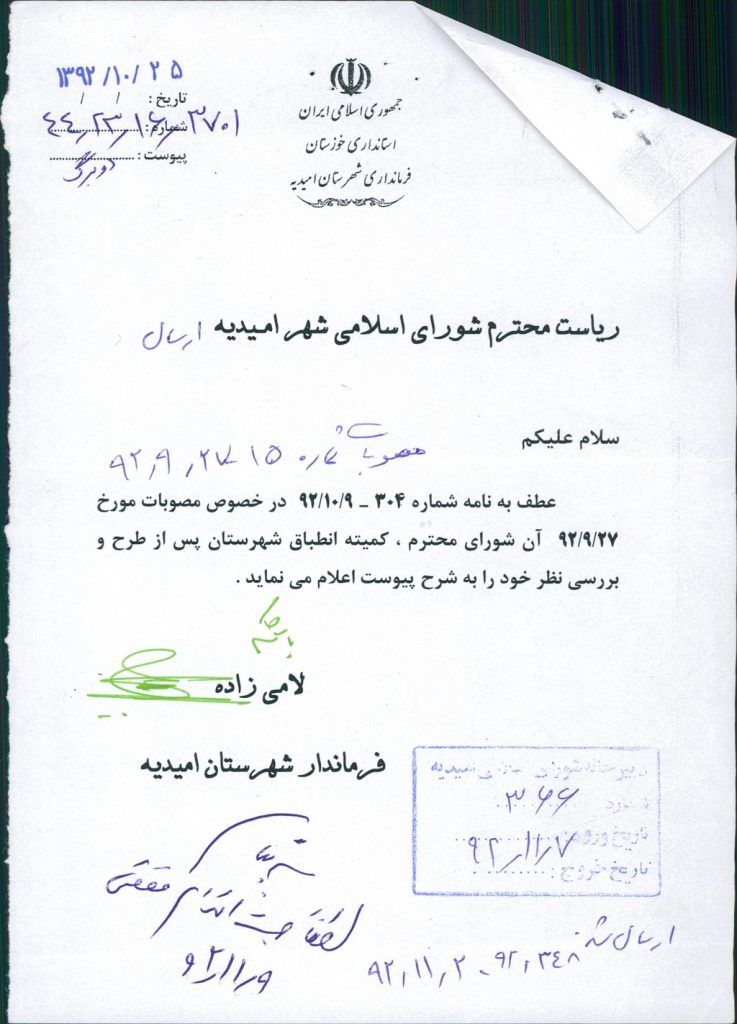 جمهوری اسلامی ایران
استانداری خوزستان
فرمانداری شهرستان امیدیه
۱۳۹۲/۱۰/۲۵
تاریخ : / /
شماره : ۴۴,۲۳,۱۶,۳۷۰۱
پیوست : دو برگ
ریاست محترم شورای اسلامی شهر امیدیه ارسال
سلام علیکم
مصوبات شماره ۱۵ ۹۲,۹,۲۷
عطف به نامه شماره ۳۰۴ – ۹۲/۱۰/۹ در خصوص مصوبات مورخ
۹۲/۹/۲۷ آن شورای محترم ، کمیته انطباق شهرستان پس از طرح و
بررسی نظر خود را به شرح پیوست اعلام می نماید .
لامی زاده
فرماندار شهرستان امیدیه
دبیرخانه شورای اسلامی امیدیه
شماره ۳۶۶
تاریخ ورود ۹۲/۱۱/۷
تاریخ خروج :
جهت اقدام
۹۲/۱۱/۹
ارسال شد ۹۲,۳۴۸ - ۹۲,۱۱,۲